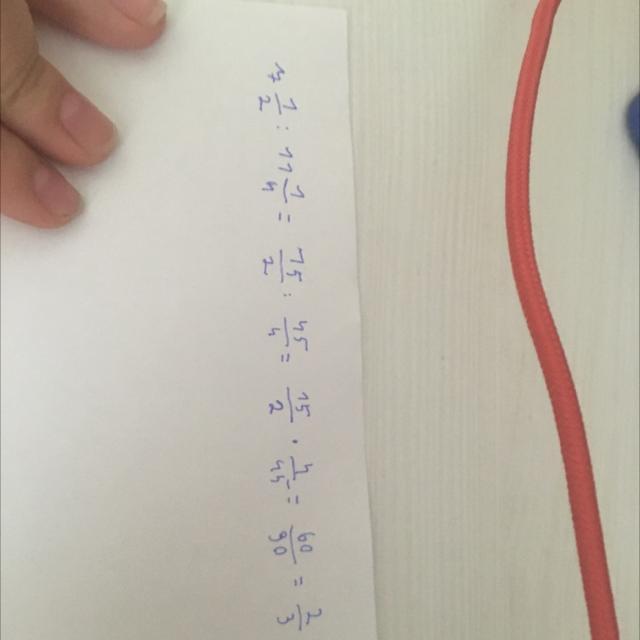 7 1/2 : 11 1/4 = 15/2 : 45/4 = 15/2 · 4/45 = 60/90 = 2/3